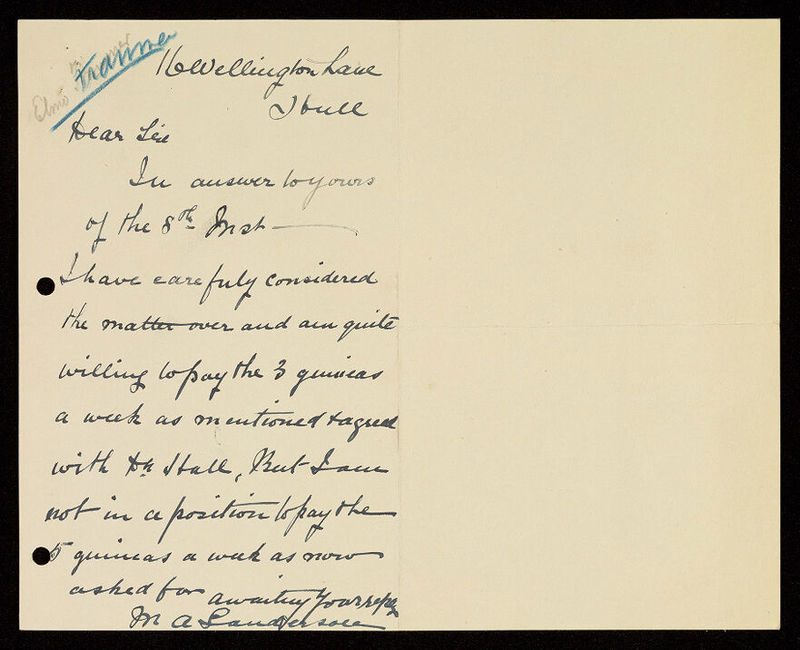 Franner
Elmo
16 Wellington Lane
Hull
Dear Sir
In answer to yours
of the 8th Inst
I have carefuly considered
the matter over and am quite
willing to pay the 3 guineas
a week as mentioned & agreed
with Dr Hall, But I am
not in a position to pay the
5 guineas a week as now
asked for awaiting your reply
M A Sanderson